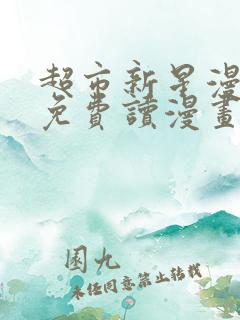 超市新星漫
免費讀漫畫
圂九
未经同意禁止转载